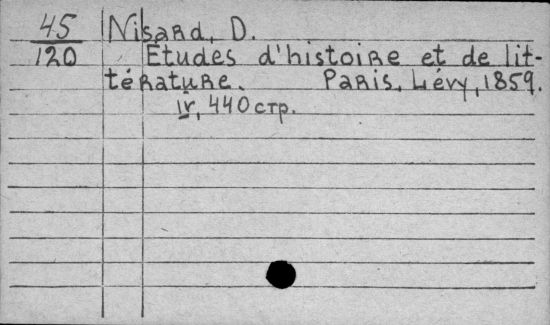 45 Nisard, D.
120 Études d'histoire et de lit-
térature. Paris, Lévy, 1859.
IV, 440 стр.